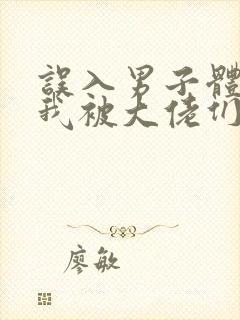 誤入男子體
我被大佬们
廖敏